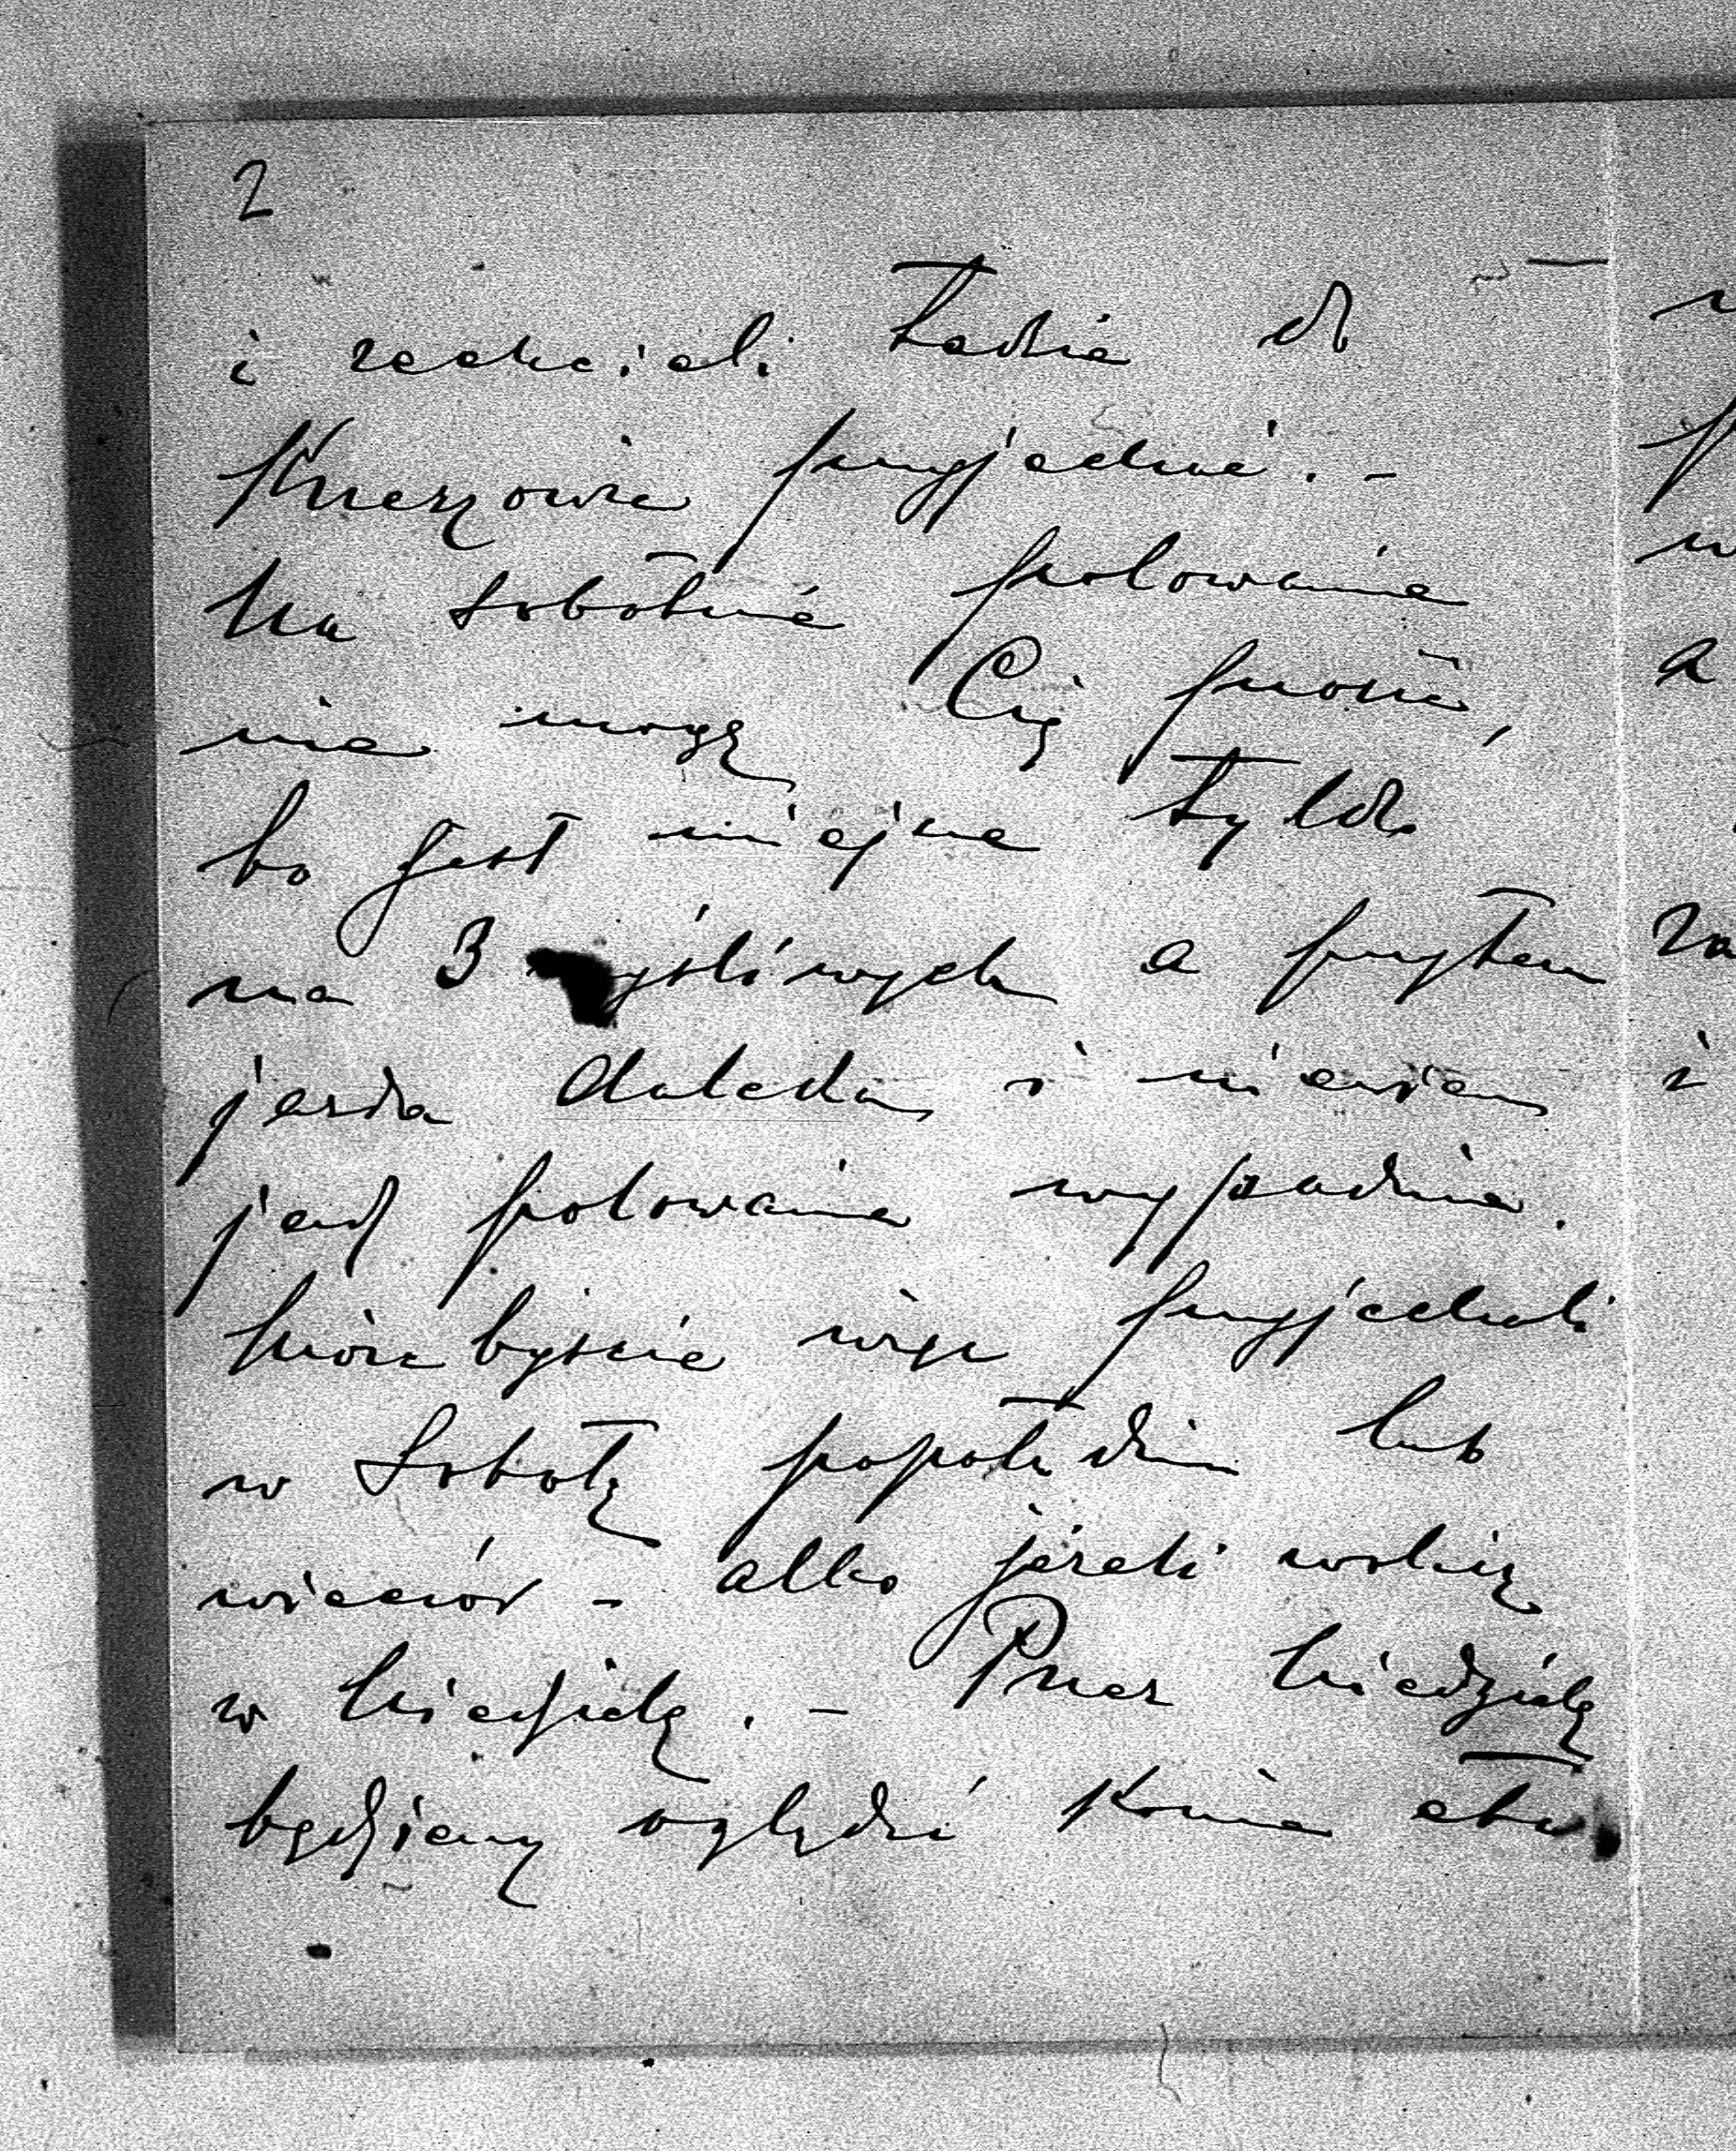 2
i zechcieli także do
Krzeszowic przyjechać. -
Na sobotnie polowanie
nie mogę Cię prosić,
bo jest miejsce tylko
na 3 myśliwych a przytem
jazda daleka i niewiem
jak polowanie wypadnie.
Możebyście więc przyjechali
w Sobotę popołudniu lub
wieczór - albo jeżeli wolicie
w Niedzielę. - Przez Niedzielę
będziemy oglądać Konie etc